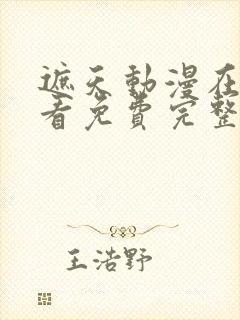 遮天動漫在
看免費完整
王浩野